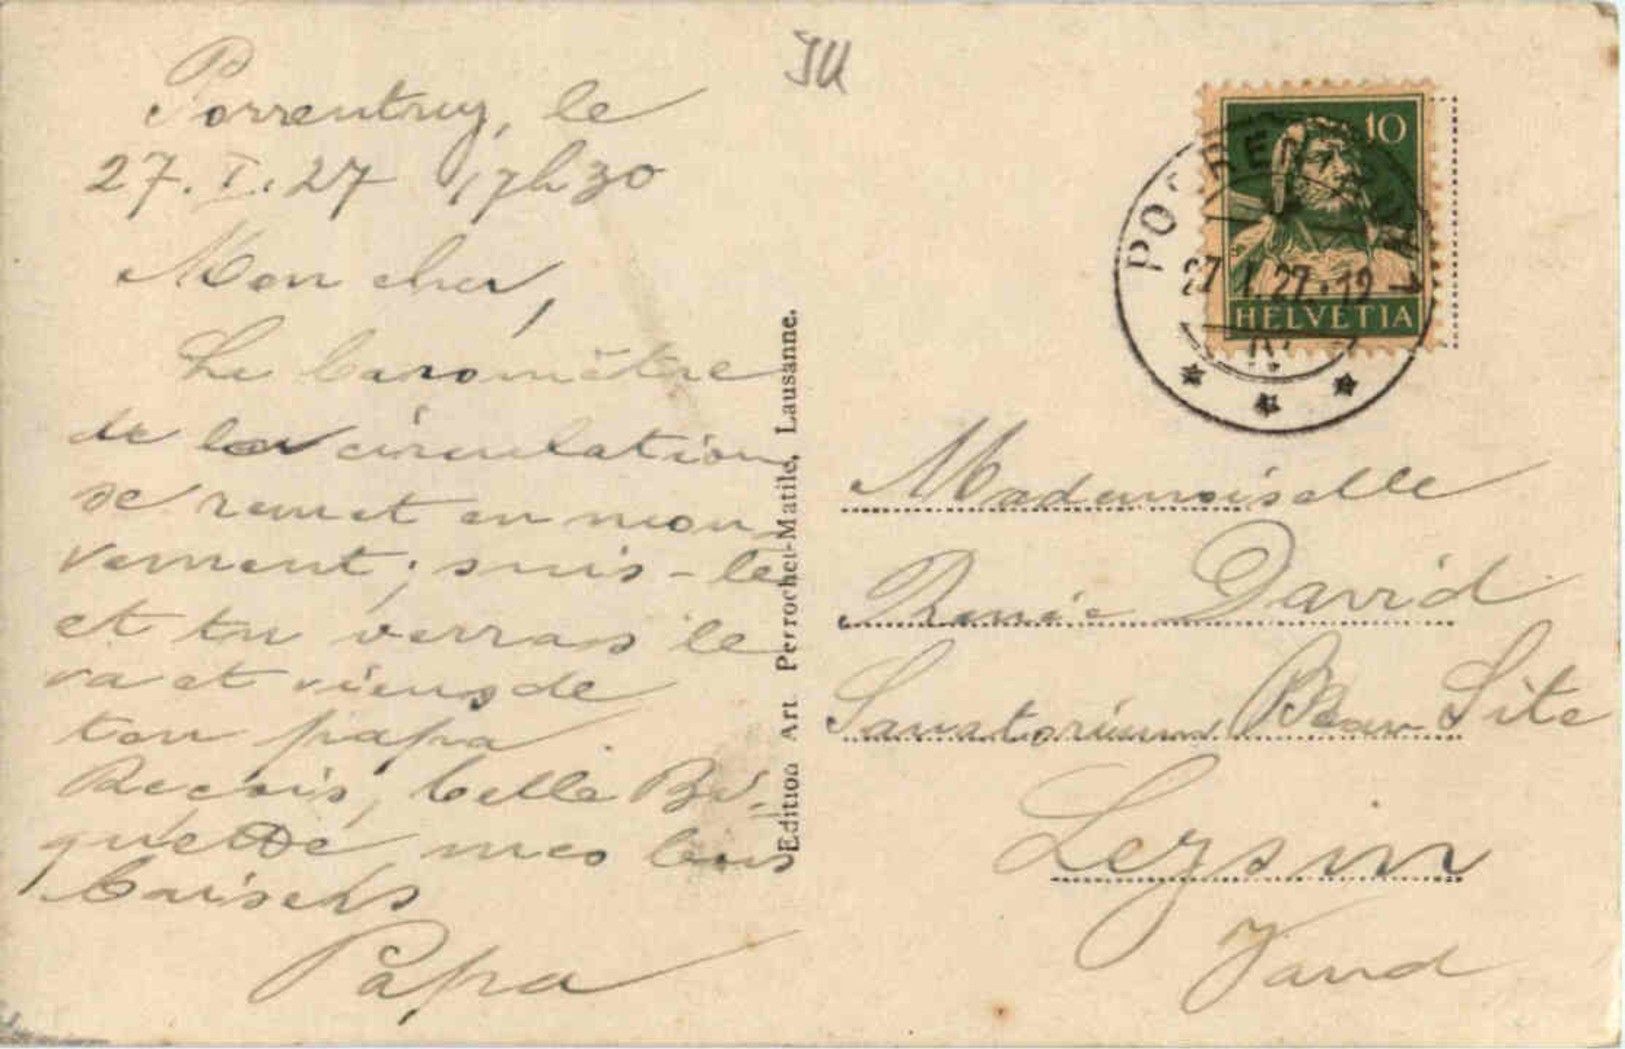 Porrentruy, le
27.I.27 17h30
Mon cher,
Le baromètre
de la circulation
se remet en mou
vement; suis-le
et tu verras le
va et viens de
ton papa.
Reçois, belle Bi-
quette, mes bons
baisers
Papa
JU
Edition Art Perrochet-Matile, Lausanne.
10
HELVETIA
27.I.27.-19
Mademoiselle
Renée David
Sanatorium Beau Site
Leysin
Vaud